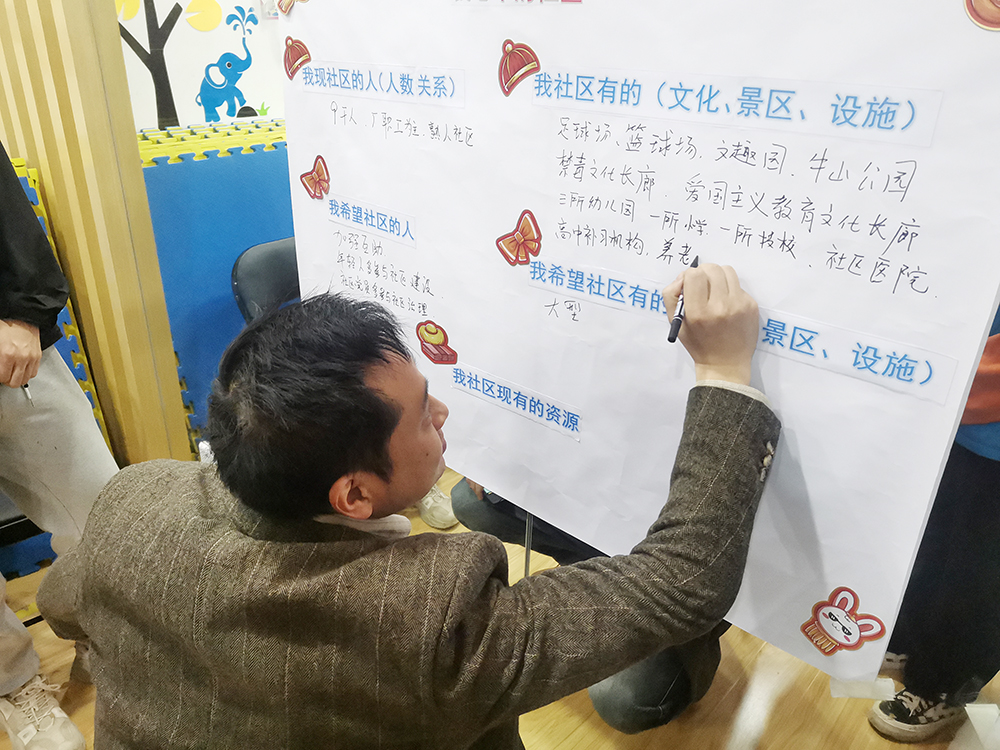 我现社区的人(人数 关系)
9千人、厂职工为主、熟人社区
我希望社区的人
加强互助
年轻人多参与社区建设、
社区党员多参与社区治理
我社区现有的资源
我社区有的（文化、景区、设施）
足球场、篮球场、文趣园、牛山公园
禁毒文化长廊、爱国主义教育文化长廊
三所幼儿园、一所小学、一所技校、社区医院、
高中补习机构，养老
我希望社区有的
景区、设施）
大型